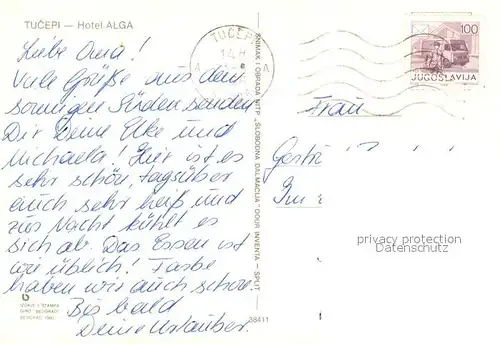 TUČEPI — Hotel ALGA
Liebe Oma!
Viele Grüße aus dem
sonnigen Süden senden
Dir Deine Elke und
Michaela! Hier ist es
sehr schön, tagsüber
auch sehr heiß und
zur Nacht kühlt es
sich ab. Das Essen ist
wie üblich! Farbe
haben wir auch schon.
Bis bald
Deine Urlauber.
IZDAJE I ŠTAMPA
BIGZ BEOGRAD
BEOGRAD
38411
SNIMAK I OBRADA NITP „SLOBODNA DALMACIJA” OOUR INVENTA - SPLIT
TUČEPI
100
JUGOSLAVIJA
Frau
privacy protection
Datenschutz